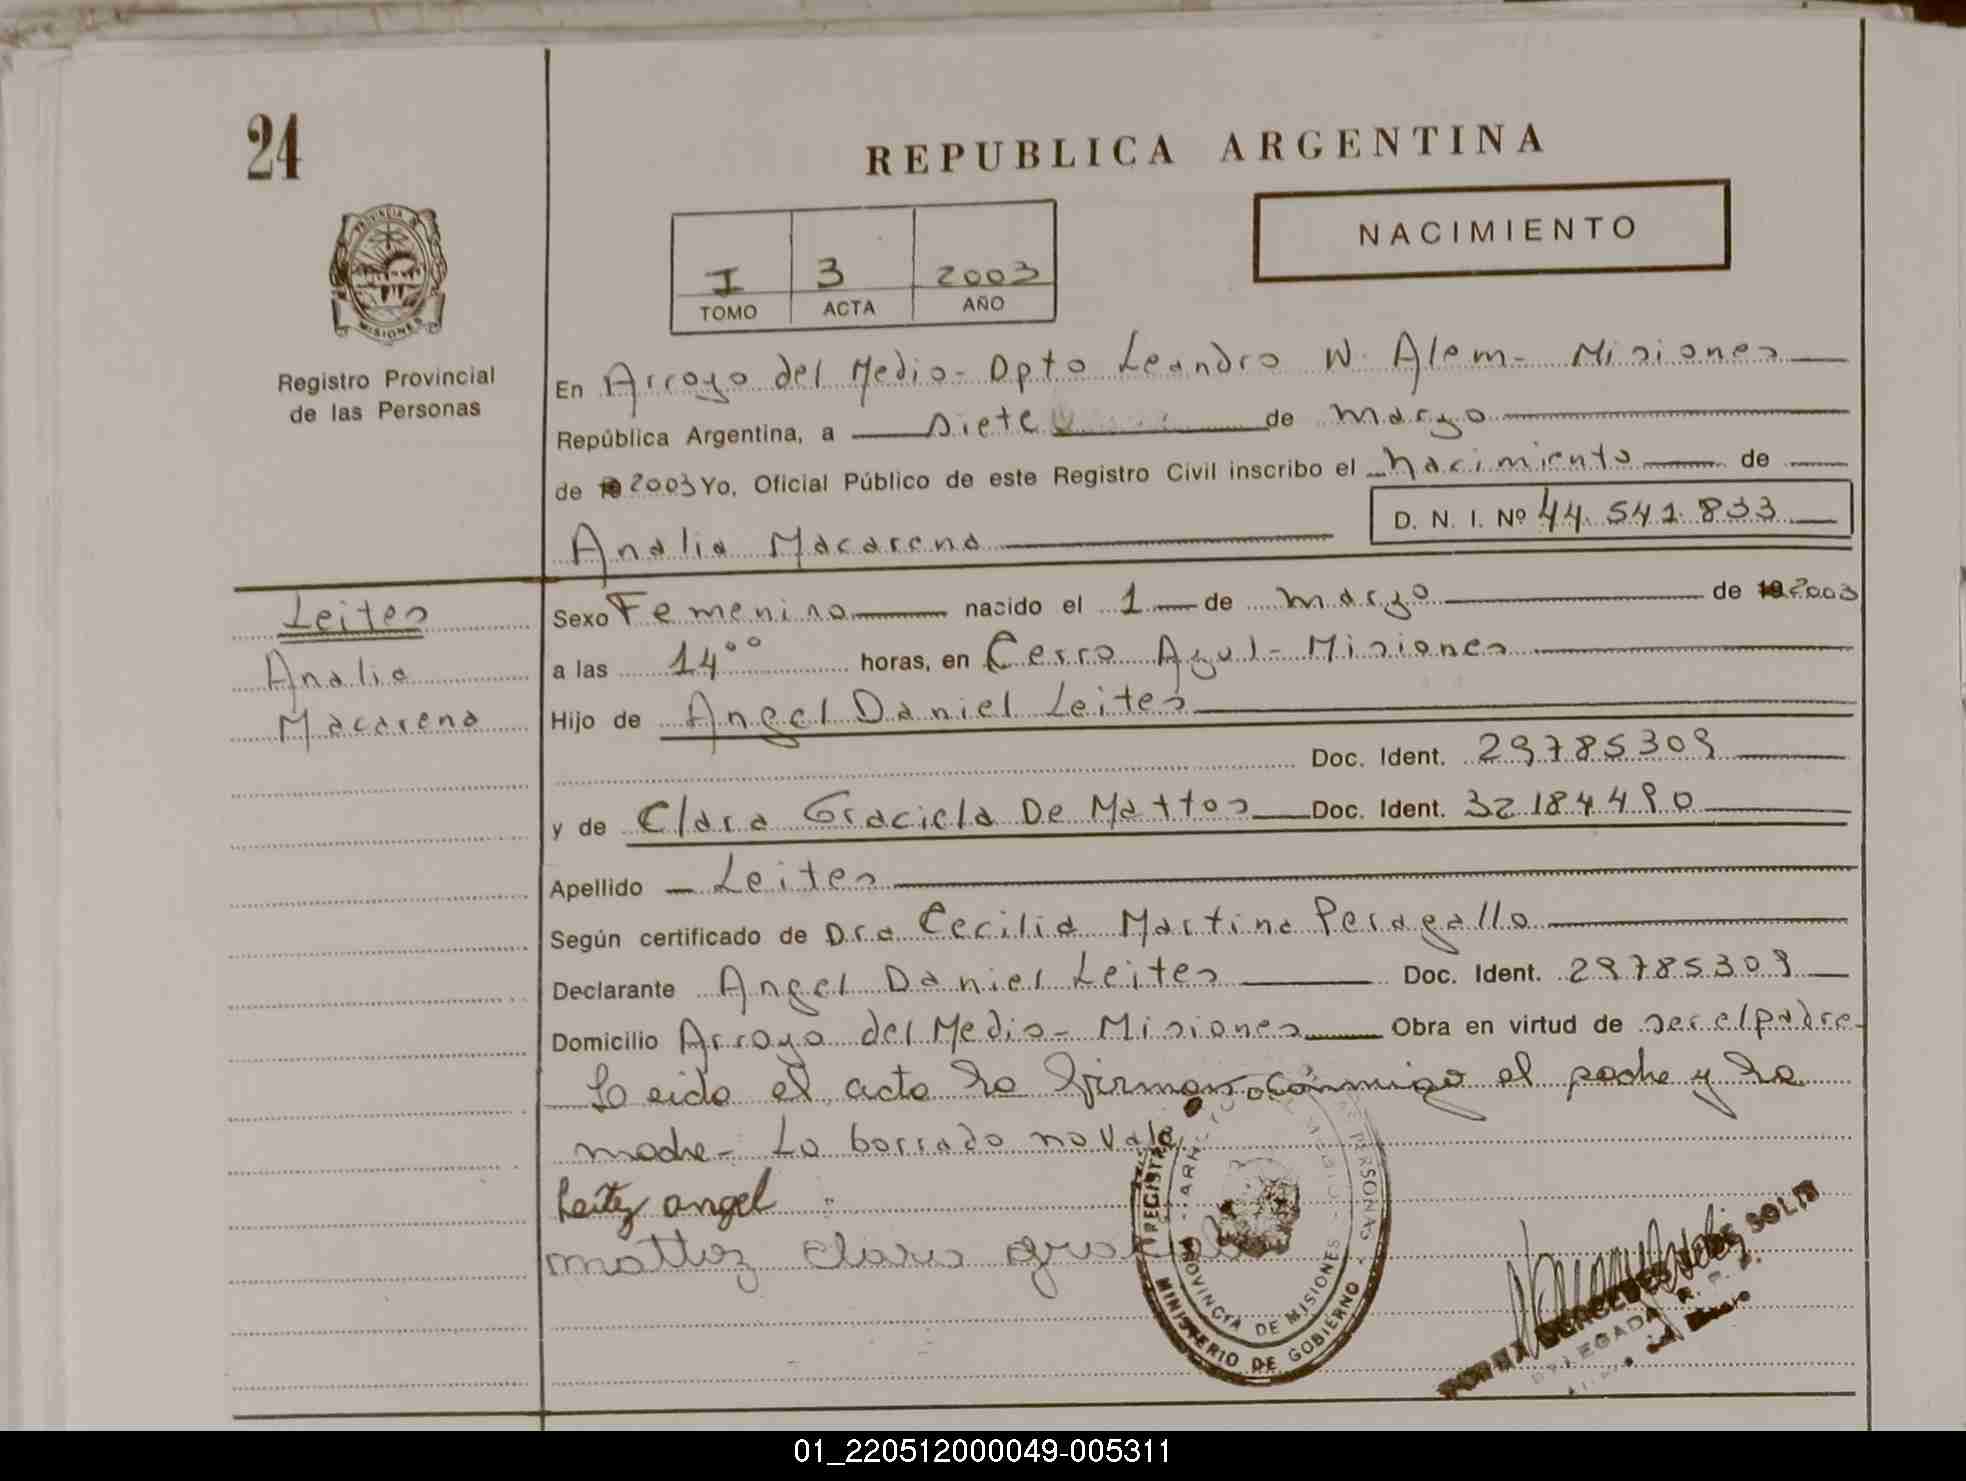 24
REPUBLICA ARGENTINA
NACIMIENTO
I 3 2003
TOMO ACTA AÑO
PROVINCIA DE
MISIONES
Registro Provincial
de las Personas
En Arroyo del Medio - Dpto Leandro N. Alem - Misiones
República Argentina, a siete de marzo
de 19 2003 Yo, Oficial Público de este Registro Civil inscribo el nacimiento de
D. N. I. Nº 44.541.833
Analia Macarena
Leites
Analia
Macarena
Sexo Femenino nacido el 1 de marzo de 19 2003
a las 14°° horas, en Cerro Azul - Misiones
Hijo de Angel Daniel Leites
Doc. Ident. 29785309
y de Clara Graciela De Mattos Doc. Ident. 32184490
Apellido Leites
Según certificado de Dra Cecilia Martina Peragallo
Declarante Angel Daniel Leites Doc. Ident. 29785309
Domicilio Arroyo del Medio - Misiones Obra en virtud de ser el padre
Leida el acta la firman conmigo el padre y la
madre - Lo borrado no vale
Leitez angel
mattoz clara
PROVINCIA DE MISIONES
MINISTERIO DE GOBIERNO
PERSONAS
MERCEDES SOLIS
DELEGADA
01_220512000049-005311